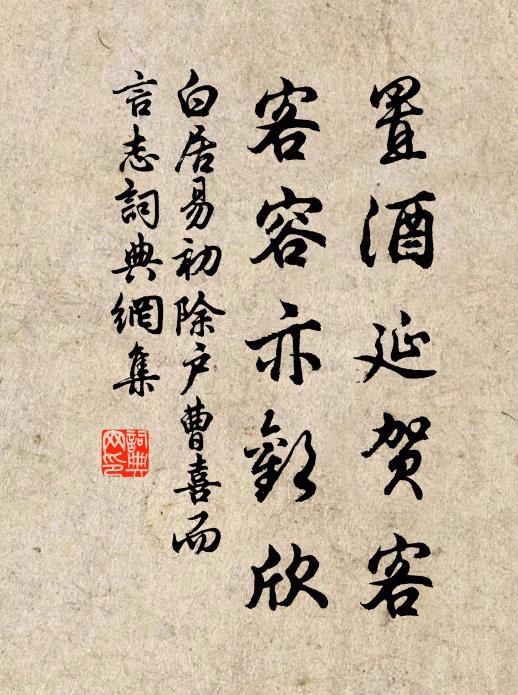 置酒延賀客
客容亦歡欣
白居易初除戶曹喜而
言志詞典網集
詞典
网印